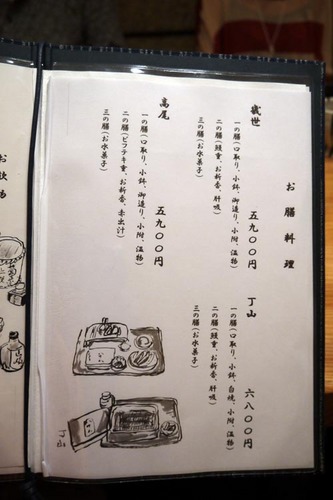 お膳料理
歳世
一の膳(口取り、小鉢、御造り、小附、温物)
二の膳(鰻重、お新香、肝吸)
三の膳(お水菓子)
五九〇〇円
丁山
一の膳(口取り、小鉢、白焼、小附、温物)
二の膳(鰻重、お新香、肝吸)
三の膳(お水菓子)
六八〇〇円
高尾
一の膳(口取り、小鉢、御造り、小附、温物)
二の膳(ビフテキ重、お新香、赤出汁)
三の膳(お水菓子)
五九〇〇円
丁山
お飲物